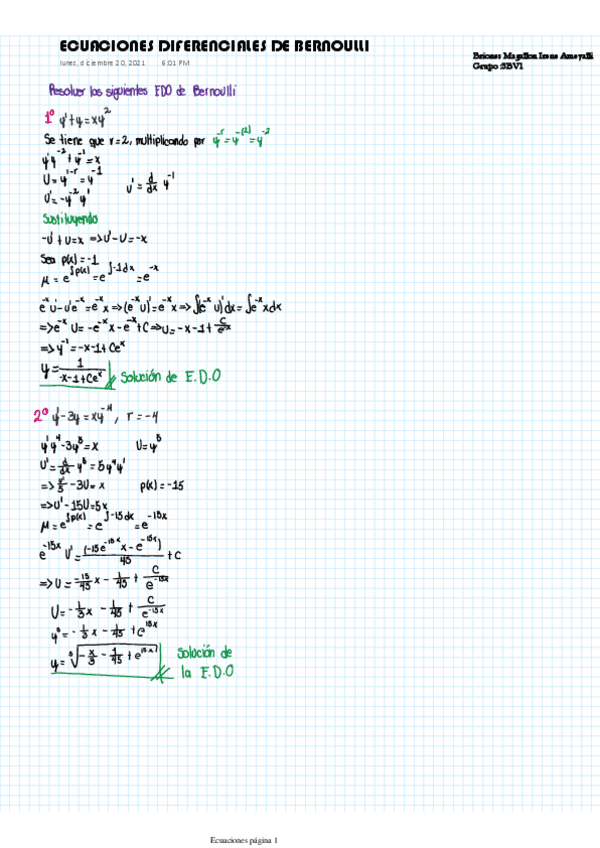 ECUACIONES DIFERENCIALES DE BERNOULLI
lunes, diciembre 20, 2021 6:01 PM
Briones Magallon Irene Ameyalli
Grupo:3BV1
Resolver las siguientes EDO de Bernoulli
1° y'+y=xy²
Se tiene que r=2, multiplicando por y^-r=y^-(2)=y^-2
y'y^-2+y^-1=x
U=y^1-r=y^-1 U'=d/dx y^-1
U'=-y^-2 y'
Sustituyendo
-U'+U=x =>U'-U=-x
Sea p(x)=-1
μ=e^∫p(x)=e^∫-1dx=e^-x
e^-x U'-U'e^-x=e^-x x=>(e^-x U)'=e^-x x=>∫(e^-x U)'dx=∫e^-x xdx
=>e^-x U=-e^-x x-e^-x+C=>U=-x-1+C/e^x
=>y^-1=-x-1+Ce^x
y=1/-x-1+Ce^x Solución de E.D.O
2° y'-3y=xy^-4, r=-4
y'y^4-3y^5=x U=y^5
U'=d/dx y^5=5y^4y'
=>U'/5-3U=x p(x)=-15
=>U'-15U=5x
μ=e^∫p(x)=e^∫-15dx=e^-15x
e^-15x U'=(-15e^-15x x-e^-15x)/45+C
=>U=-15/45x-1/45+C/e^-15x
U=-1/3x-1/45+C/e^-15x
y^5=-1/3x-1/45+Ce^15x
y=⁵√-x/3-1/45+e^15x Solución de
la E.D.O
Ecuaciones página 1